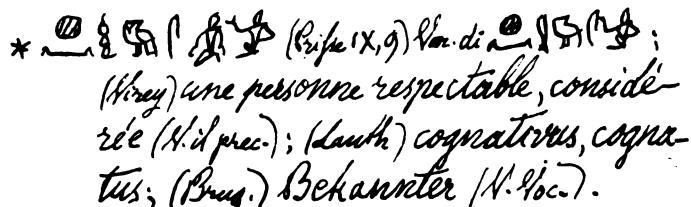 * (Prisse IX, 9) Var. di ;
(Virey) une personne respectable, considé-
rée (V. il prec.); (Lauth) cognativus, cogna-
tus; (Brug.) Bekannter (V. Voc.).